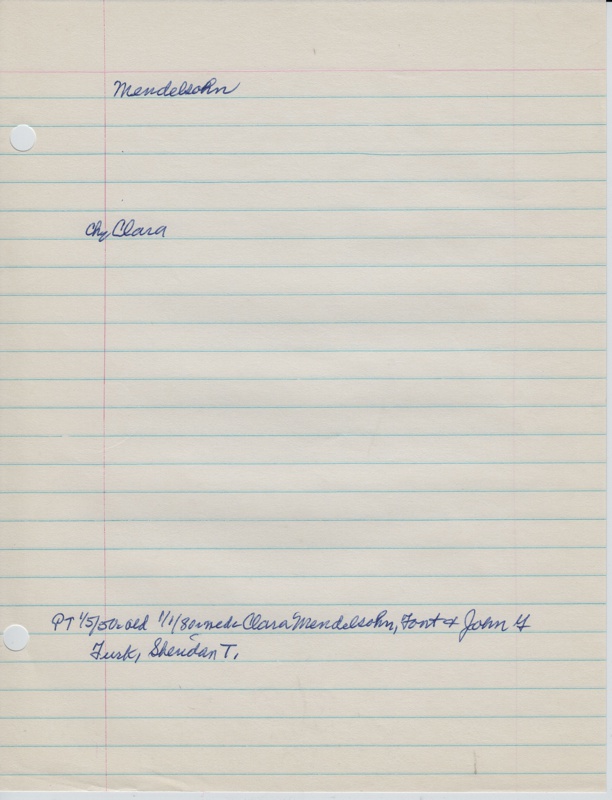 Mendelsohn
Ch, Clara
PT 1/5/50 wed 1/1/50 Clara Mendelsohn, Font & John G
Turk, Sheridan T.